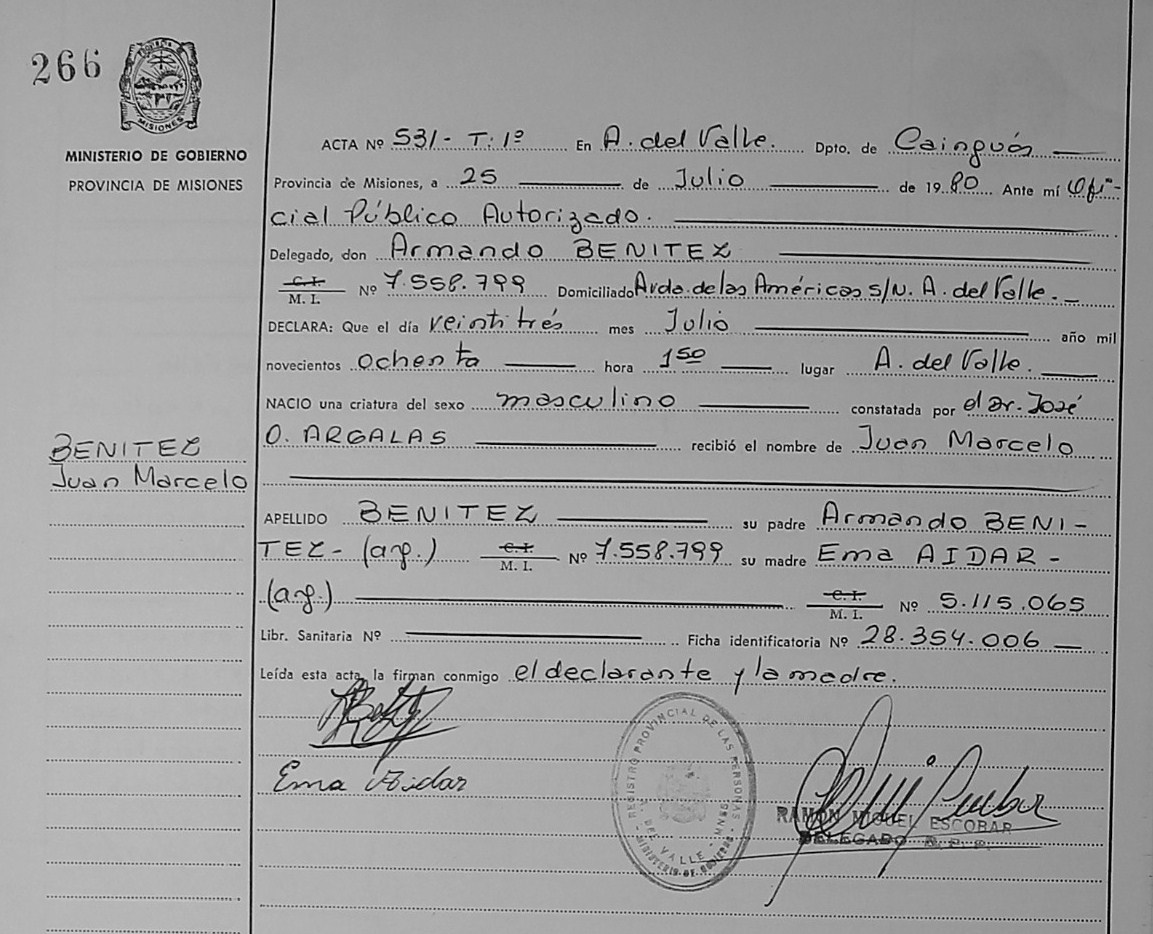 266
PROVINCIA DE
MISIONES
MINISTERIO DE GOBIERNO
PROVINCIA DE MISIONES
ACTA Nº 531- T: 1º En A. del Valle. Dpto. de Cainguás
Provincia de Misiones, a 25 de Julio de 1980 Ante mí Ofi-
cial Público Autorizado.
Delegado, don Armando BENITEZ
C. I.
M. I. Nº 7.558.799 Domiciliado Avda. de las Américas s/N. A. del Valle.
DECLARA: Que el día veinti trés mes Julio año mil
novecientos ochenta hora 150 lugar A. del Valle.
NACIO una criatura del sexo masculino constatada por el Dr. José
O. ARGALAS recibió el nombre de Juan Marcelo
BENITEZ
Juan Marcelo
APELLIDO BENITEZ su padre Armando BENI-
TEZ- (arg.) C. I. M. I. Nº 7.558.799 su madre Ema AIDAR-
(arg.) C. I. M. I. Nº 5.115.065
Libr. Sanitaria Nº Ficha identificatoria Nº 28.354.006
Leída esta acta, la firman conmigo el declarante y la madre.
Ema Aidar
REGISTRO PROVINCIAL DE LAS PERSONAS
DEL VALLE - MNES.
MINISTERIO DE GOBIERNO
RAMON MIGUEL ESCOBAR
DELEGADO R. P. P.